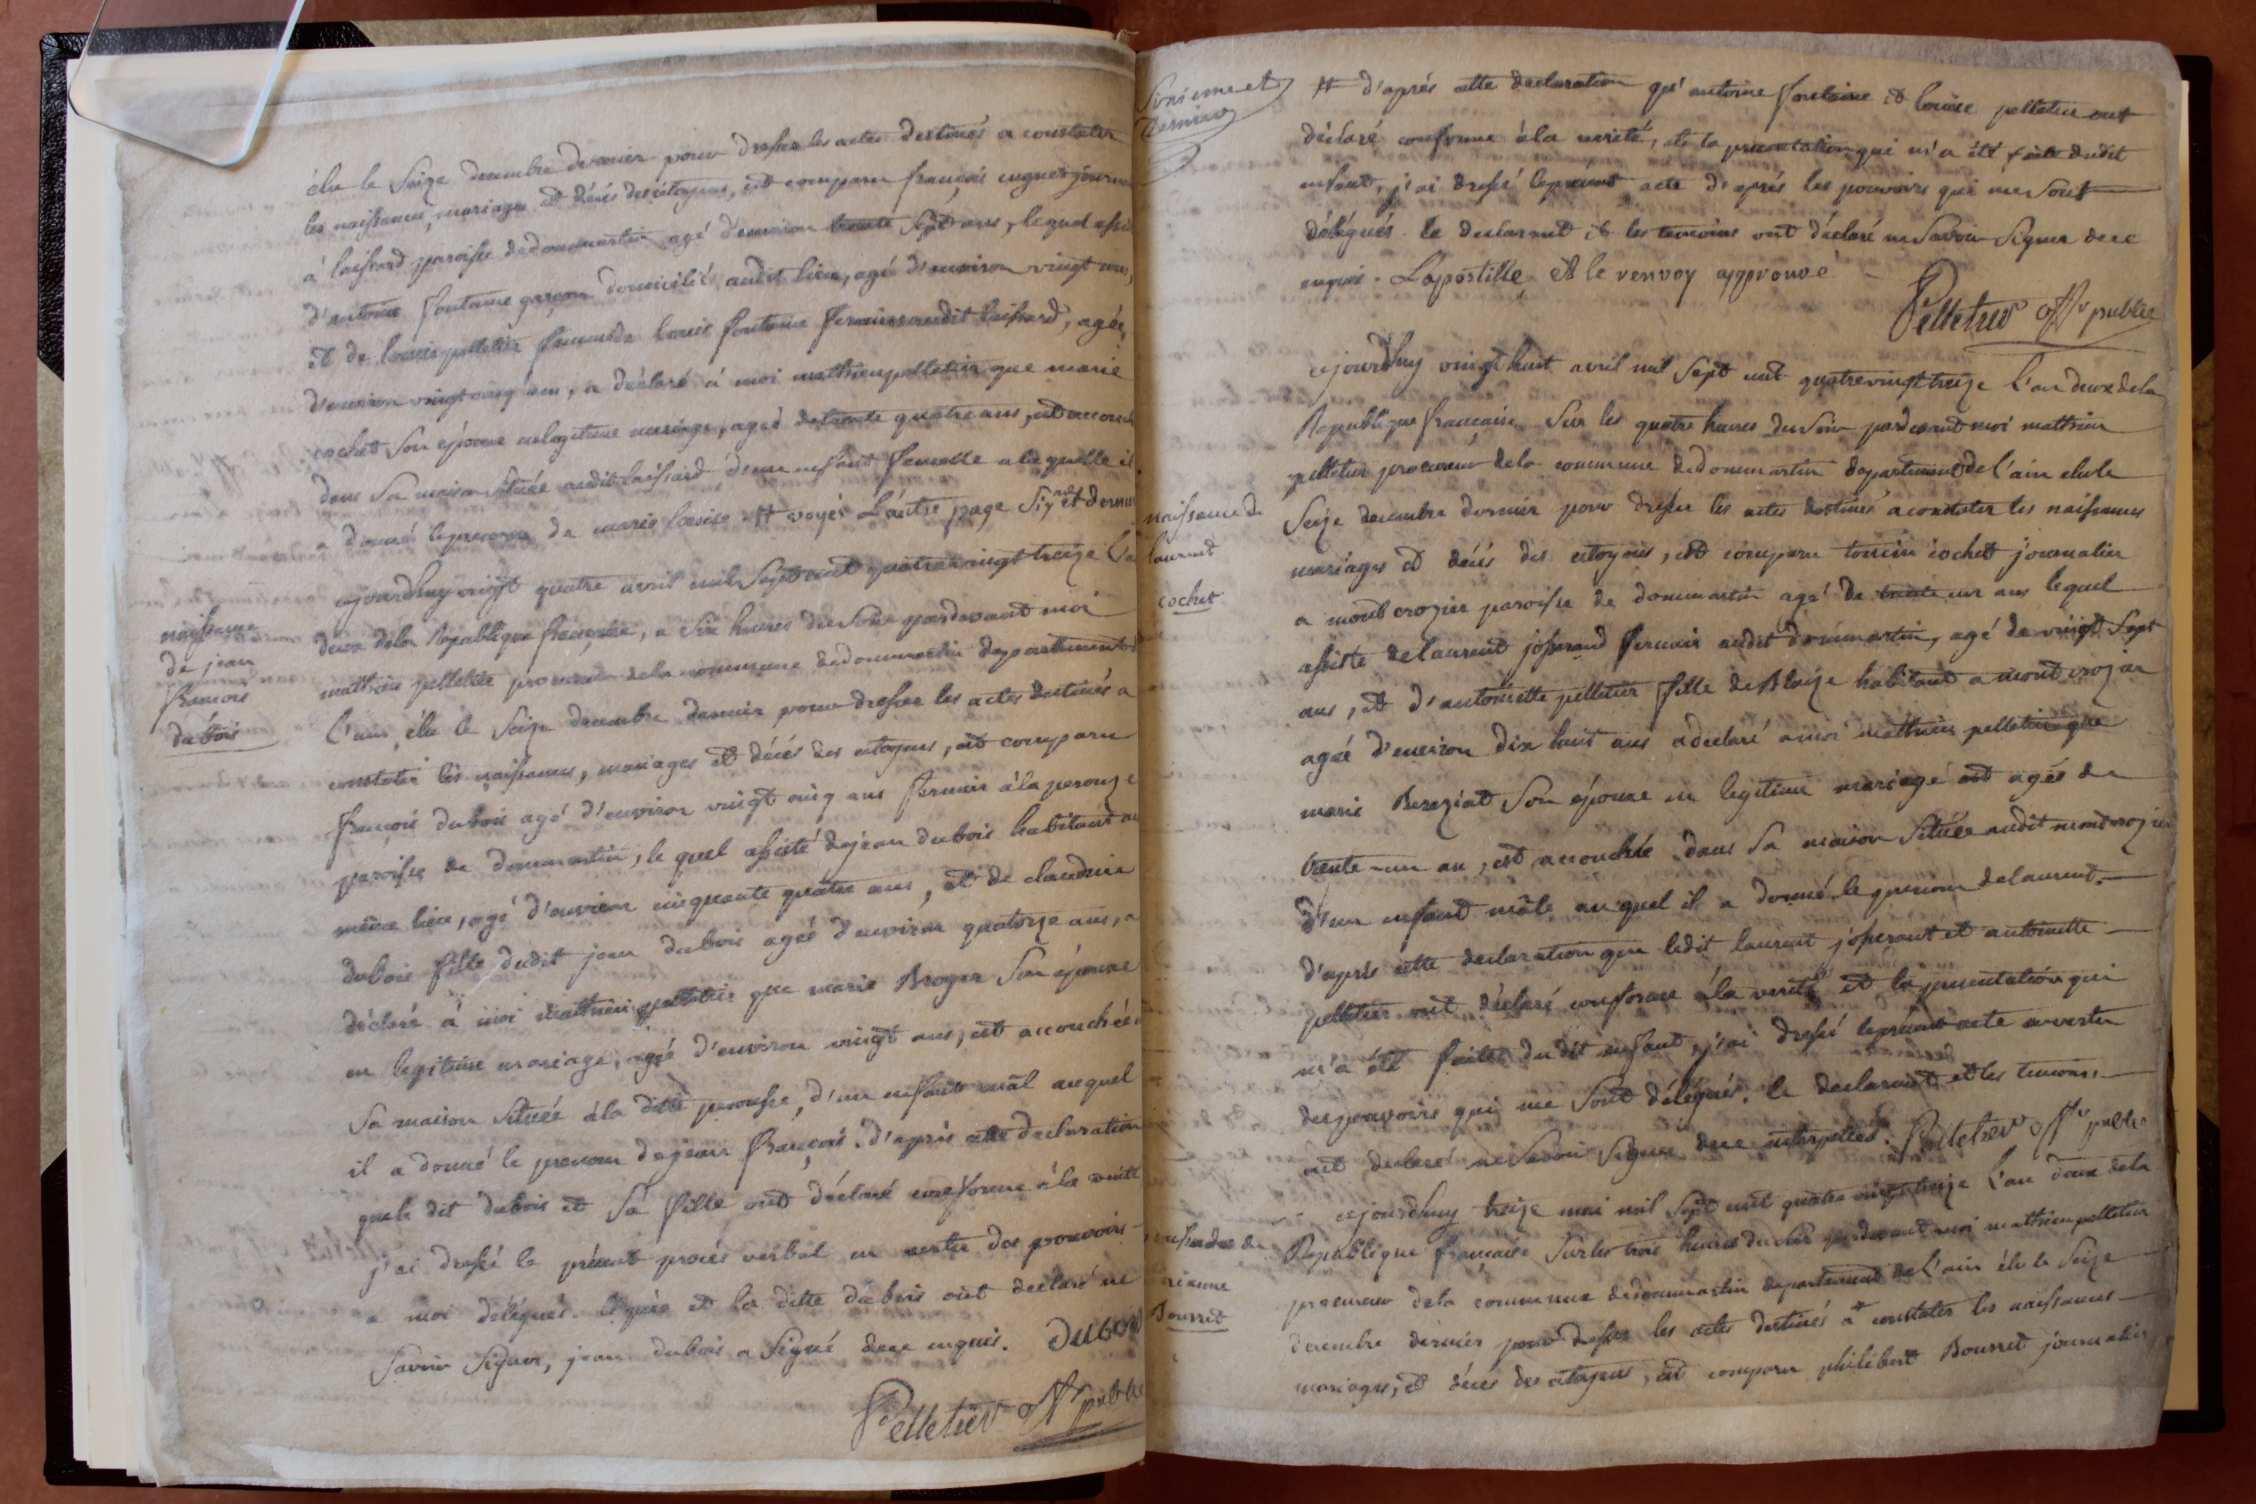 élu le Seize decembre dernier pour dresser les actes destinés a constater
les naissances, mariages et décés des citoyens, est comparu françois cugnet journ
à laissard paroisse de dommartin agé d'environ trente sept ans, lequel assis
d'antoine fontaine garçon domicilié audit lieu, agé d'environ vingt ans,
et de louise pelletier femme de louis fontaine fermier audit laissard, agée
d'environ vingt cinq ans, a déclaré à moi mathieu pelletier que marie
cochet son épouse en legitime mariage, agée de trente quatre ans, est accouch
dans sa maison située audit laissard d'un enfant femelle a laquelle il
a donné le prenom de marie louise # voyés l'autre page et dernier
naissance
de jean
francois
dubois
cejourdhuy vingt quatre avril mil sept cent quatre vingt treize l'an
deux de la Republique françoise, a six heures du soir pardevant moi
mathieu pelletier procureur de la commune de dommartin departement
l'ain, élu le Seize decembre dernier pour dresser les actes destinés a
constater les naissances, mariages et décés des citoyens, est comparu
françois dubois agé d'environ vingt cinq ans fermier à la perouze
paroisse de dommartin, le quel assisté de jean dubois habitant au
même lieu, agé d'environ cinquante quatre ans, et de claudine
dubois fille dudit jean dubois agée d'environ quatorze ans, a
déclaré à moi mathieu pelletier que marie Broyer son épouse
en legitime mariage, agée d'environ vingt ans, est accouchée
sa maison située à la ditte perousse, d'un enfant mâl auquel
il a donné le prenom de jean françois. d'après cette declaration
que le dit dubois et sa fille ont déclaré conforme à la verité
j'ai dressé le présent procès verbal en vertu des pouvoirs
a moi délégués. le père et la ditte dubois ont declaré ne
savoir signer, jean dubois a signé de ce enquis. dubois
Pelletier offr public
et
dernier
# d'aprés cette declaration qu'antoine fontaine et louise pelletier ont
déclaré conforme à la verité, et la presentation qui m'a été faite dudit
enfant, j'ai dressé le present acte d'aprés les pouvoirs qui me sont
délégués. le declarant et les temoins ont déclaré ne savoir signer de ce
enquis. L'apostille et le renvoy approuvé
Pelletier offr public
naissance de
laurent
cochet
cejourdhuy vingt huit avril mil sept cent quatre vingt treize l'an deux de la
Republique française sur les quatre heures du soir pardevant moi mathieu
pelletier procureur de la commune de dommartin departement de l'ain elu le
Seize decembre dernier pour dresser les actes destinés a constater les naissances
mariages et décés des citoyens, est comparu cochet journalier
a mont crozier paroisse de dommartin agé de trente un ans lequel
assisté de laurent josserand fermier audit dommartin, agé de vingt sept
ans, et d'antoinette pelletier fille de Blaize habitant a mont crozier
agée d'environ dix huit ans a declaré a moi mathieu pelletier que
marie Bereziat son épouse en legitime mariage et agée de
trente un an, est accouchée dans sa maison située audit mont crozier
d'un enfant mâle auquel il a donné le prenom de laurent.
d'après cette declaration que ledit laurent josserant et antoinette
pelletier ont déclaré conforme à la verité et la presentation qui
m'a été faite dudit enfant, j'ai dressé le present acte en vertu
des pouvoirs qui me sont délégués. le declarant et les temoins
ont declaré ne savoir signer de ce interpellés. Pelletier offr public
naissance de
Bourret
cejourdhuy treize mai mil sept cent quatre vingt treize l'an deux de la
Republique française sur les trois heures du soir pardevant moi mathieu pelletier
procureur de la commune de dommartin departement de l'ain élu le Seize
decembre dernier pour dresser les actes destinés a constater les naissances
mariages, et décés des citoyens, est comparu philibert Bourret journalier